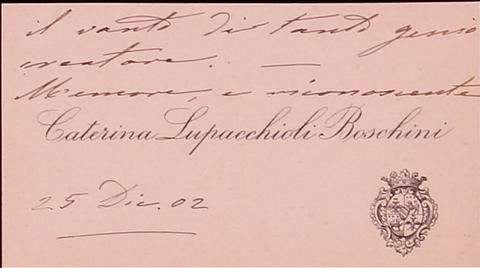 il vanto di tanto genio
creatore. —
Memore, e riconoscente
Caterina Lupacchioli Boschini
25 Dic. 02